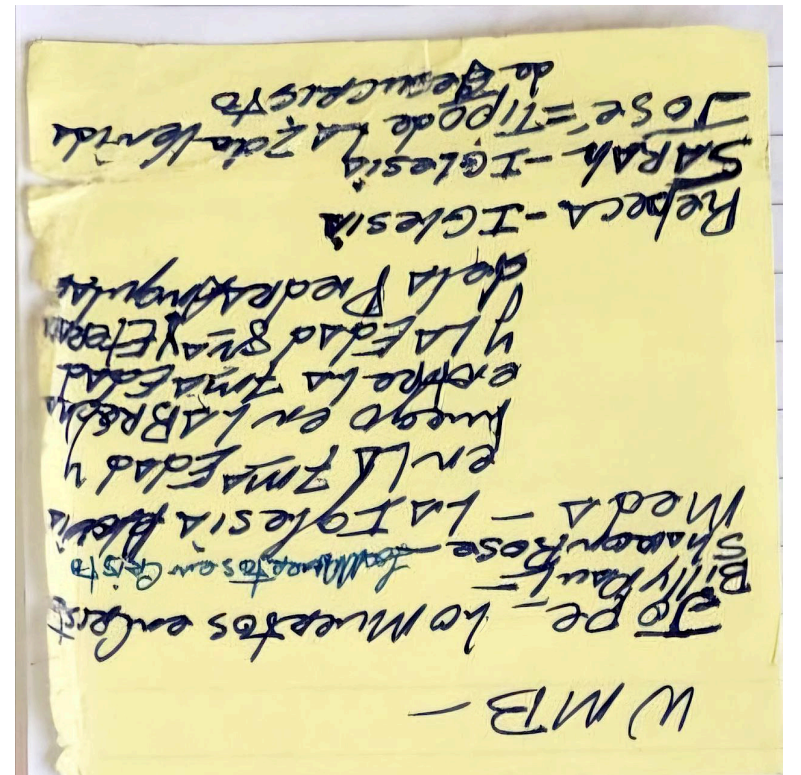 WMB -
Jope - Lo Muertos en Crist
Billy Paul -
Sharon Rose - Los Muertos en Cristo
Meda - La Iglesia Novia
en La 7ma Edad y
luego en La Brecha
entre La 7ma Edad
y La Edad 8va y Eterna
de La Piedra Angular
Rebeca - Iglesia
Sarah - Iglesia
José = Tipo de La 2da Venida
de Jesucristo